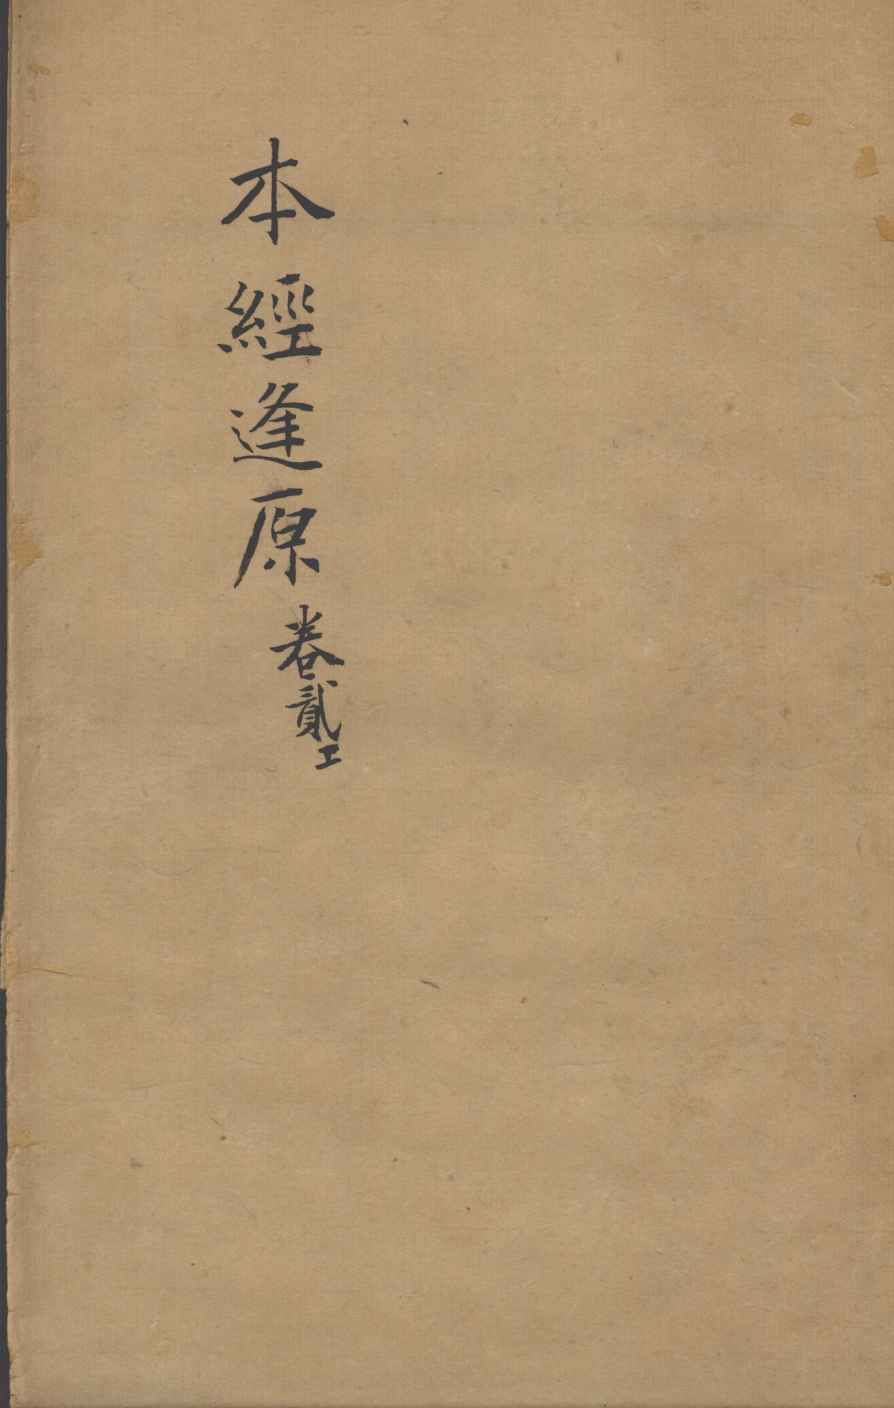 本經逢原
卷貳工